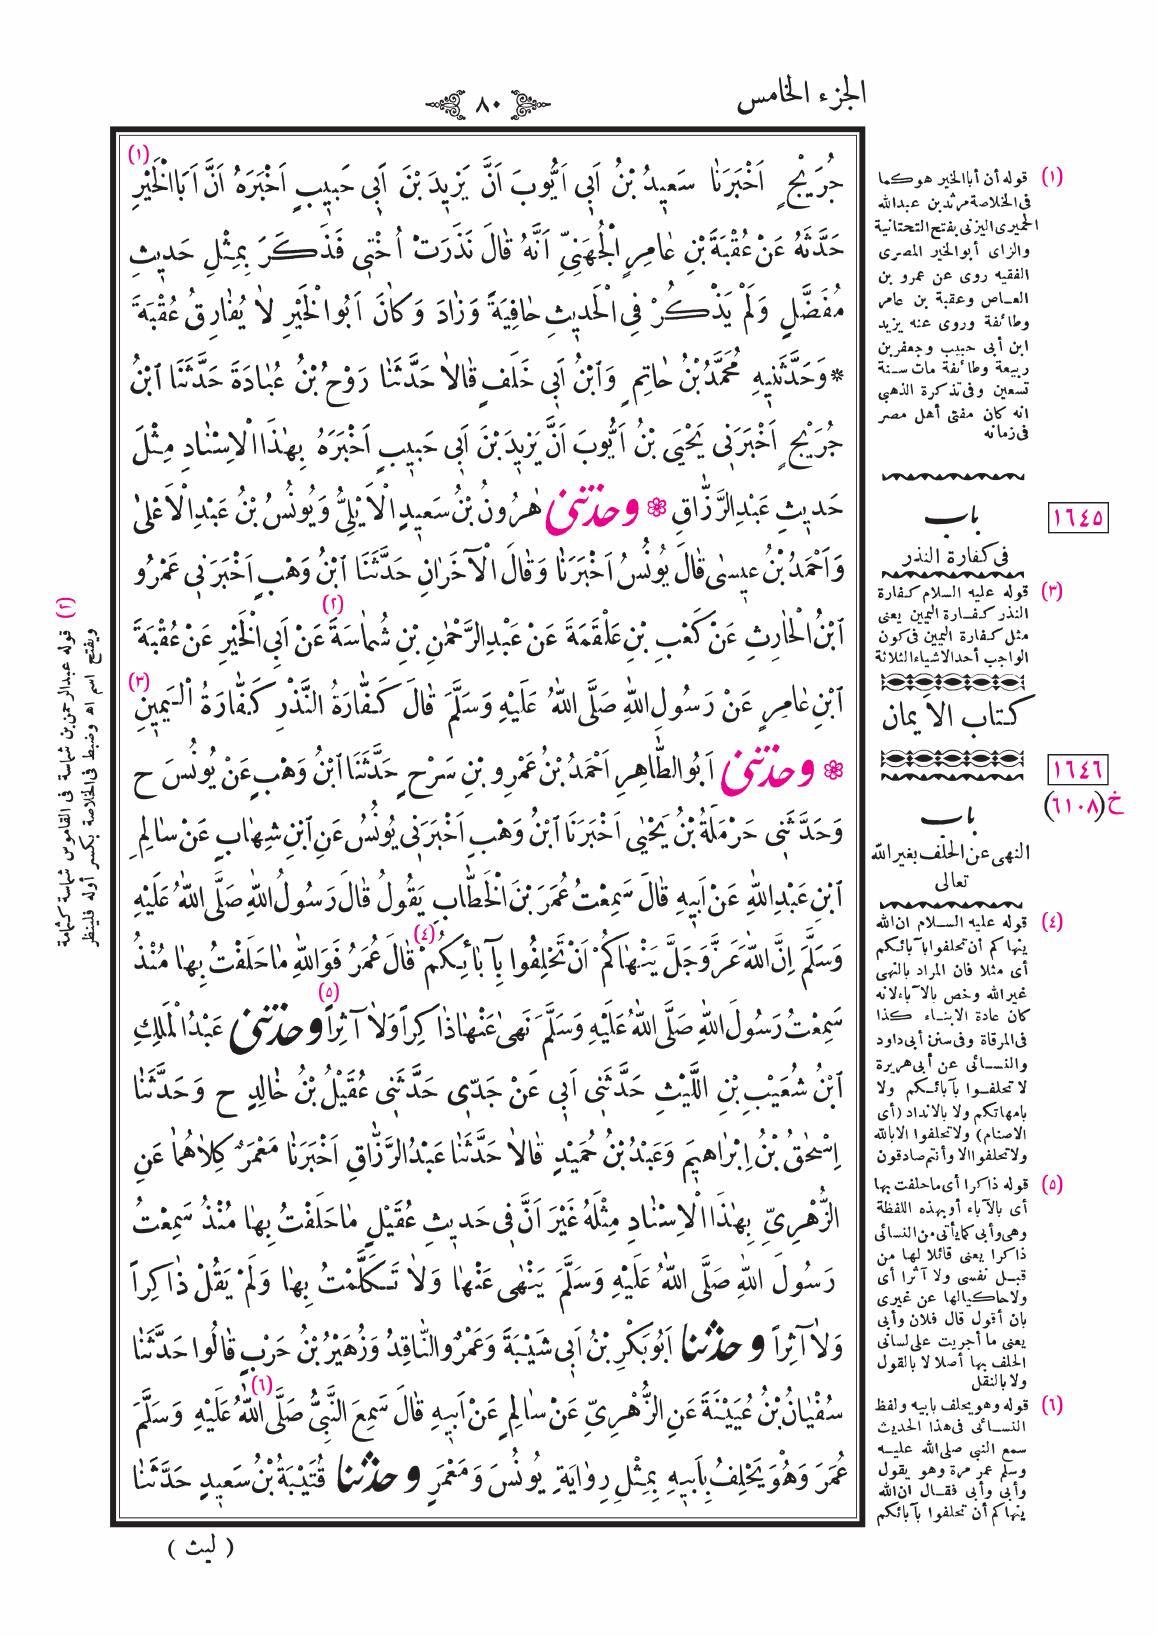 الجزء الخامس
٨٠
(١)
جُرَيْجٍ أَخْبَرَنَا سَعِيدُ بْنُ أَبِي أَيُّوبَ أَنَّ يَزِيدَ بْنَ أَبِي حَبِيبٍ أَخْبَرَهُ أَنَّ أَبَا الْخَيْرِ
حَدَّثَهُ عَنْ عُقْبَةَ بْنِ عَامِرٍ الْجُهَنِيِّ أَنَّهُ قَالَ نَذَرَتْ أُخْتِي فَذَكَرَ بِمِثْلِ حَدِيثِ
مُفَضَّلٍ وَلَمْ يَذْكُرْ فِي الْحَدِيثِ حَافِيَةً وَزَادَ وَكَانَ أَبُو الْخَيْرِ لَا يُفَارِقُ عُقْبَةَ
* وَحَدَّثَنِيهِ مُحَمَّدُ بْنُ حَاتِمٍ وَابْنُ أَبِي خَلَفٍ قَالَا حَدَّثَنَا رَوْحُ بْنُ عُبَادَةَ حَدَّثَنَا ابْنُ
جُرَيْجٍ أَخْبَرَنِي يَحْيَى بْنُ أَيُّوبَ أَنَّ يَزِيدَ بْنَ أَبِي حَبِيبٍ أَخْبَرَهُ بِهٰذَا الْإِسْنَادِ مِثْلَ
حَدِيثِ عَبْدِ الرَّزَّاقِ * وحدثنى هٰرُونُ بْنُ سَعِيدٍ الْأَيْلِيُّ وَيُونُسُ بْنُ عَبْدِ الْأَعْلَى
وَأَحْمَدُ بْنُ عِيسَى قَالَ يُونُسُ أَخْبَرَنَا وَقَالَ الْآخَرَانِ حَدَّثَنَا ابْنُ وَهْبٍ أَخْبَرَنِي عَمْرُو
(٢)
ابْنُ الْحَارِثِ عَنْ كَعْبِ بْنِ عَلْقَمَةَ عَنْ عَبْدِ الرَّحْمٰنِ بْنِ شُمَاسَةَ عَنْ أَبِي الْخَيْرِ عَنْ عُقْبَةَ
(٣)
ابْنِ عَامِرٍ عَنْ رَسُولِ اللهِ صَلَّى اللهُ عَلَيْهِ وَسَلَّمَ قَالَ كَفَّارَةُ النَّذْرِ كَفَّارَةُ الْيَمِينِ
* وحدثنى أَبُو الطَّاهِرِ أَحْمَدُ بْنُ عَمْرِو بْنِ سَرْحٍ حَدَّثَنَا ابْنُ وَهْبٍ عَنْ يُونُسَ ح
وَحَدَّثَنِي حَرْمَلَةُ بْنُ يَحْيَى أَخْبَرَنَا ابْنُ وَهْبٍ أَخْبَرَنِي يُونُسُ عَنِ ابْنِ شِهَابٍ عَنْ سَالِمِ
ابْنِ عَبْدِ اللهِ عَنْ أَبِيهِ قَالَ سَمِعْتُ عُمَرَ بْنَ الْخَطَّابِ يَقُولُ قَالَ رَسُولُ اللهِ صَلَّى اللهُ عَلَيْهِ
(٤)
وَسَلَّمَ إِنَّ اللهَ عَزَّ وَجَلَّ يَنْهَاكُمْ أَنْ تَحْلِفُوا بِآبَائِكُمْ قَالَ عُمَرُ فَوَاللهِ مَا حَلَفْتُ بِهَا مُنْذُ
(٥)
سَمِعْتُ رَسُولَ اللهِ صَلَّى اللهُ عَلَيْهِ وَسَلَّمَ نَهَى عَنْهَا ذَاكِرًا وَلَا آثِرًا وحدثنى عَبْدُ الْمَلِكِ
ابْنُ شُعَيْبِ بْنِ اللَّيْثِ حَدَّثَنِي أَبِي عَنْ جَدِّي حَدَّثَنِي عُقَيْلُ بْنُ خَالِدٍ ح وَحَدَّثَنَا
إِسْحٰقُ بْنُ إِبْرَاهِيمَ وَعَبْدُ بْنُ حُمَيْدٍ قَالَا حَدَّثَنَا عَبْدُ الرَّزَّاقِ أَخْبَرَنَا مَعْمَرٌ كِلَاهُمَا عَنِ
الزُّهْرِيِّ بِهٰذَا الْإِسْنَادِ مِثْلَهُ غَيْرَ أَنَّ فِي حَدِيثِ عُقَيْلٍ مَا حَلَفْتُ بِهَا مُنْذُ سَمِعْتُ
رَسُولَ اللهِ صَلَّى اللهُ عَلَيْهِ وَسَلَّمَ يَنْهَى عَنْهَا وَلَا تَكَلَّمْتُ بِهَا وَلَمْ يَقُلْ ذَاكِرًا
وَلَا آثِرًا وحدثنا أَبُو بَكْرِ بْنُ أَبِي شَيْبَةَ وَعَمْرٌو النَّاقِدُ وَزُهَيْرُ بْنُ حَرْبٍ قَالُوا حَدَّثَنَا
(٦)
سُفْيَانُ بْنُ عُيَيْنَةَ عَنِ الزُّهْرِيِّ عَنْ سَالِمٍ عَنْ أَبِيهِ قَالَ سَمِعَ النَّبِيُّ صَلَّى اللهُ عَلَيْهِ وَسَلَّمَ
عُمَرَ وَهُوَ يَحْلِفُ بِأَبِيهِ بِمِثْلِ رِوَايَةِ يُونُسَ وَمَعْمَرٍ وحدثنا قُتَيْبَةُ بْنُ سَعِيدٍ حَدَّثَنَا
( ليث )
(١) قوله أن أبا الخير هو كما
فى الخلاصة مرثد بن عبدالله
الحميرى اليزنى بفتح التحتانية
والزاى أبو الخير المصرى
الفقيه روى عن عمرو بن
العاص وعقبة بن عامر
وطائفة وروى عنه يزيد
ابن أبى حبيب وجعفر بن
ربيعة وطائفة مات سنة
تسعين وفى تذكرة الذهبى
انه كان مفتى أهل مصر
فى زمانه
باب
١٦٤٥
فى كفارة النذر
(٣) قوله عليه السلام كفارة
النذر كفارة اليمين يعنى
مثل كفارة اليمين فى كون
الواجب أحد الاشياء الثلاثة
كتاب الأيمان
١٦٤٦
خ (٦١٠٨)
باب
النهى عن الحلف بغير الله
تعالى
(٤) قوله عليه السلام ان الله
ينهاكم أن تحلفوا بآبائكم
أى مثلا فان المراد بالنهى
غير الله وخص بالآباء لانه
كان عادة الابناء كذا
فى المرقاة وفى سنن أبى داود
والنسائى عن أبى هريرة
لا تحلفوا بآبائكم ولا
بامهاتكم ولا بالانداد (أى
الاصنام) ولا تحلفوا الا بالله
ولا تحلفوا الا وأنتم صادقون
(٥) قوله ذاكرا أى ما حلفت بها
أى بالآباء أو بهذه اللفظة
وهى وأبى كما يأتى من النسائى
ذاكرا يعنى قائلا لها من
قبل نفسى ولا آثرا أى
ولا حاكيا لها عن غيرى
بان أقول قال فلان وأبى
يعنى ما أجريت على لسانى
الحلف بها أصلا لا بالقول
ولا بالنقل
(٦) قوله وهو يحلف بابيه ولفظ
النسائى فى هذا الحديث
سمع النبي صلى الله عليه
وسلم عمر مرة وهو يقول
وأبى وأبى فقال ان الله
ينهاكم أن تحلفوا بآبائكم
(٢) قوله عبدالرحمن بن شماسة فى القاموس شماسة كثمامة
ويفتح اسم اه وضبط فى الخلاصة بكسر أوله فلينظر